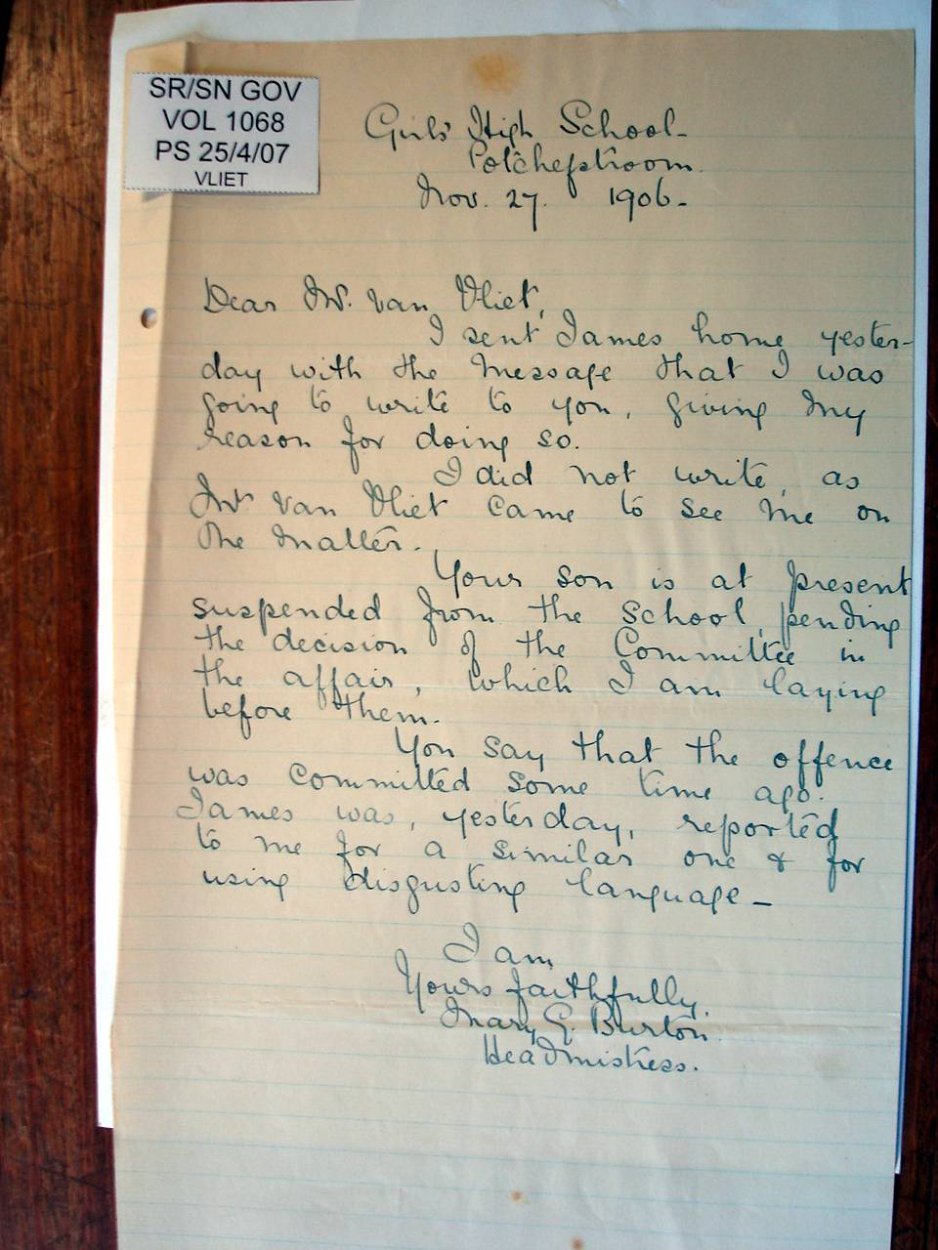 SR/SN GOV
VOL 1068
PS 25/4/07
VLIET
Girls' High School.
Potchefstroom.
Nov. 27. 1906.
Dear Mr. Van Vliet,
I sent James home yester-
day with the message that I was
going to write to you, giving my
reason for doing so.
I did not write, as
Mr Van Vliet came to see me on
the matter.
Your son is at present
suspended from the school, pending
the decision of the Committee in
the affair, which I am laying
before them.
You say that the offence
was committed some time ago.
James was, yesterday, reported
to me for a similar one & for
using disgusting language _
I am,
Yours faithfully,
Mary G. Burton.
Headmistress.